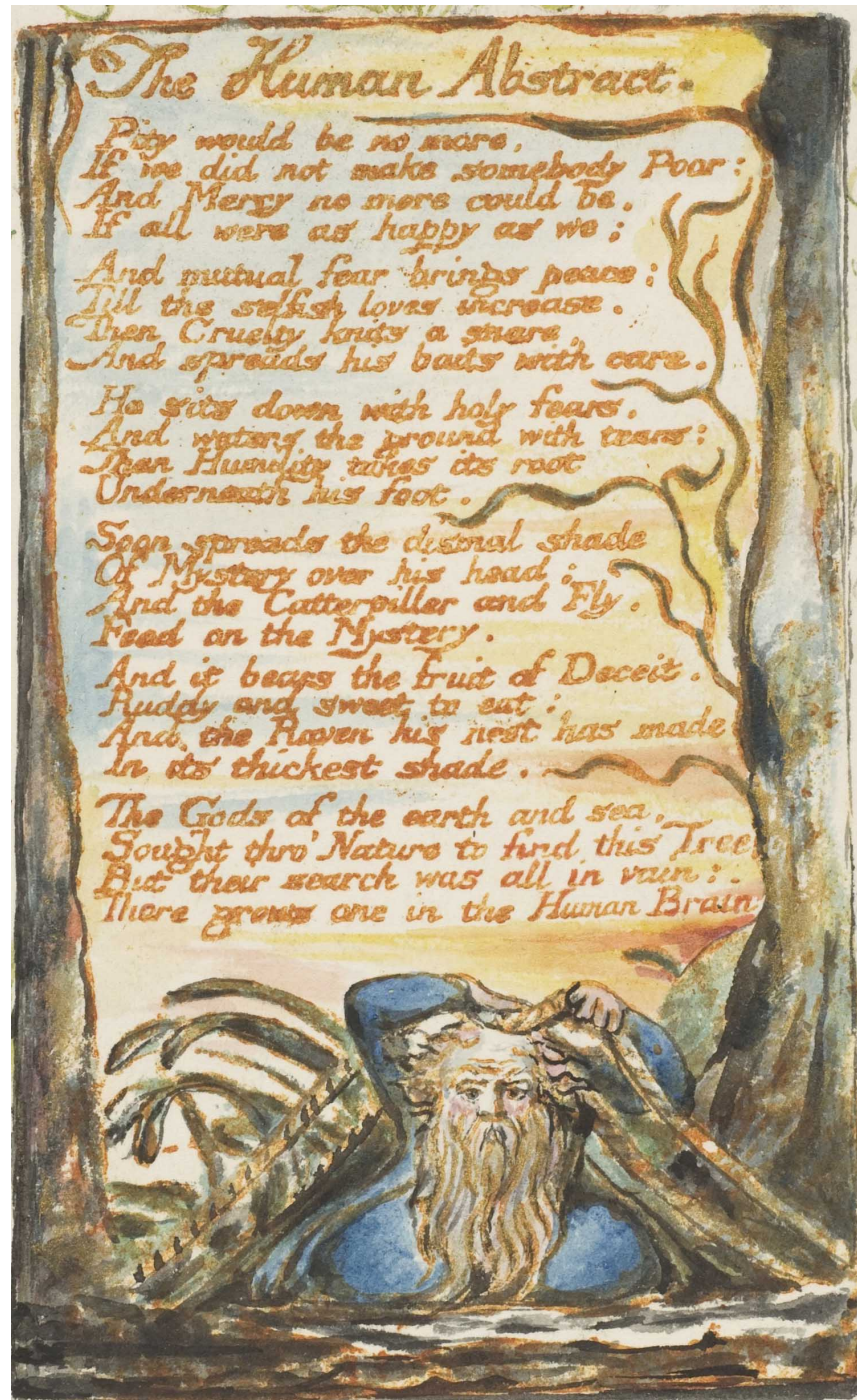 The Human Abstract.
Pity would be no more,
If we did not make somebody Poor:
And Mercy no more could be,
If all were as happy as we;
And mutual fear brings peace;
Till the selfish loves increase.
Then Cruelty knits a snare,
And spreads his baits with care.
He sits down with holy fears,
And waters the ground with tears:
Then Humility takes its root
Underneath his foot.
Soon spreads the dismal shade
Of Mystery over his head;
And the Catterpiller and Fly,
Feed on the Mystery.
And it bears the fruit of Deceit.
Ruddy and sweet to eat:
And the Raven his nest has made
In its thickest shade.
The Gods of the earth and sea,
Sought thro' Nature to find this Tree
But their search was all in vain:
There grows one in the Human Brain